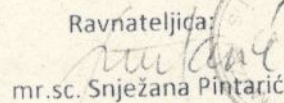 Ravnateljica:
mr.sc. Snježana Pintarić